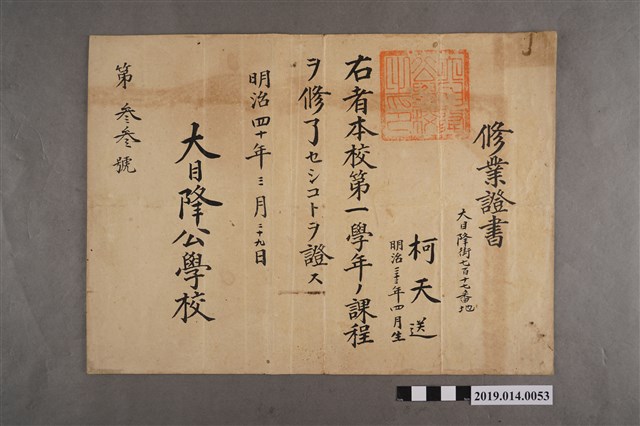 修業證書
大目降街七百十七番地
柯天送
明治三十年四月生
右者本校第一學年ノ課程
ヲ修了セシコトヲ證ス
明治四十年三月二十九日
大目降公學校
第參參號
2019.014.0053